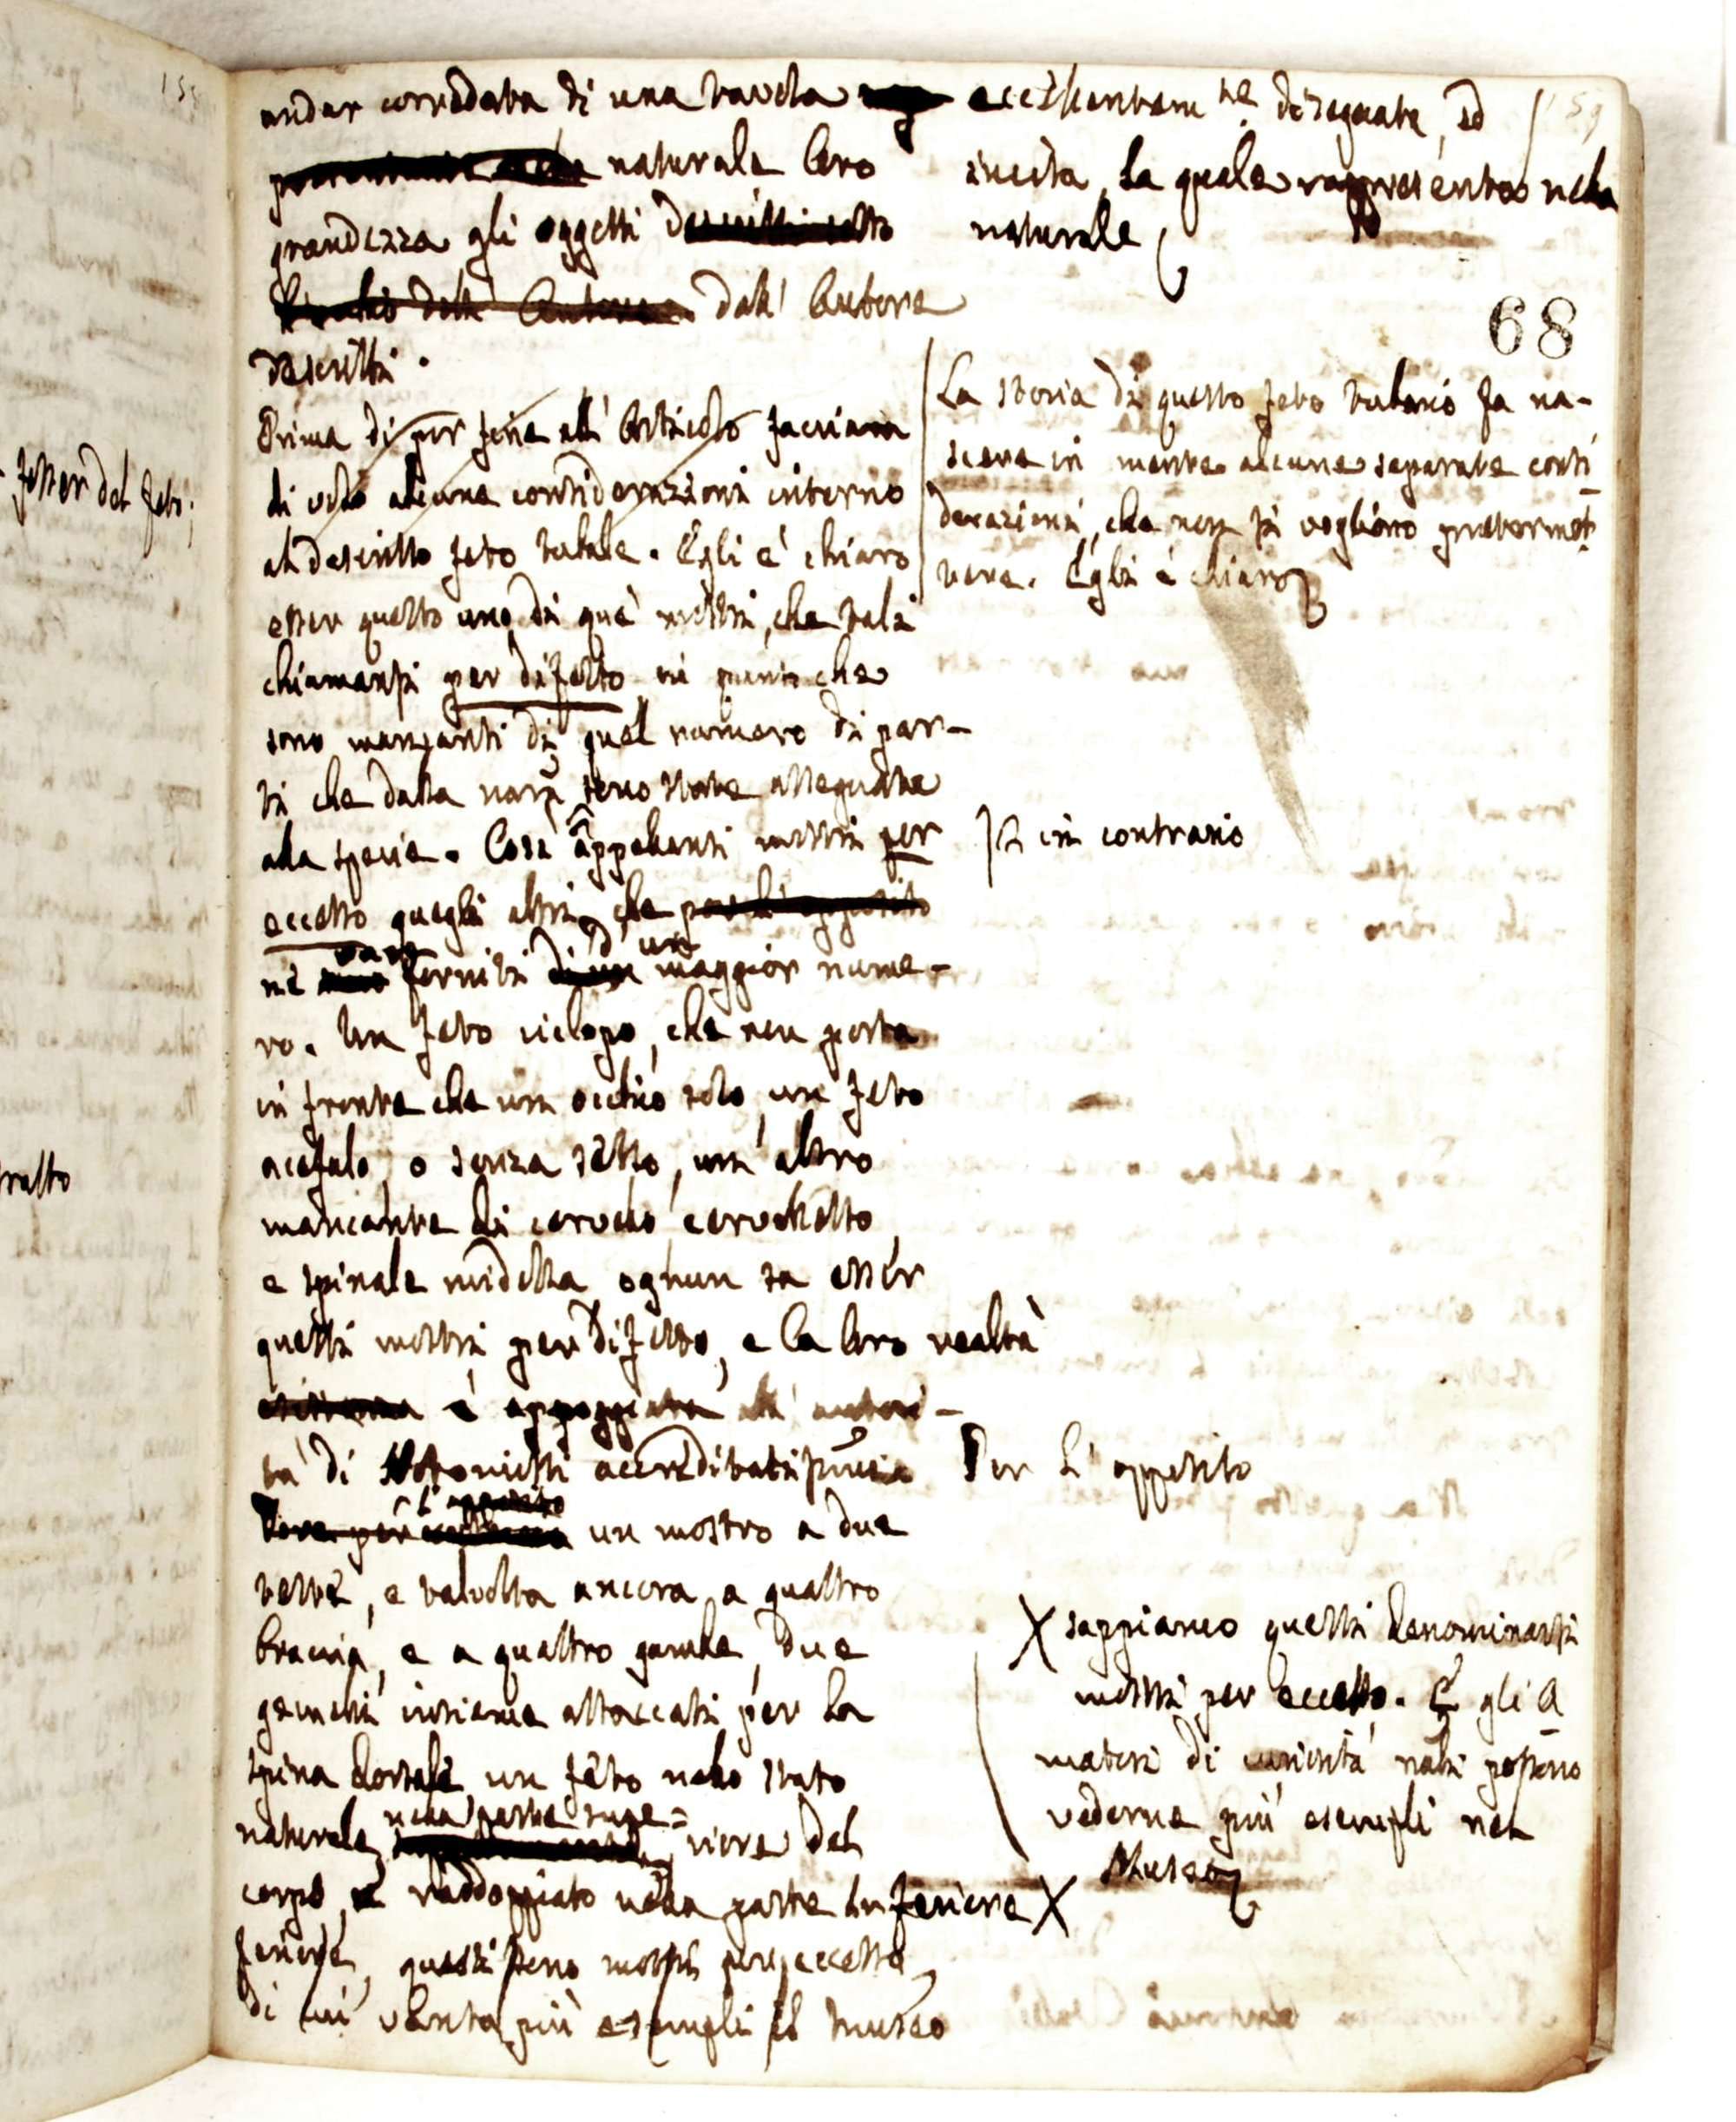 andar corredata di una tavola eccellentem.te disegnata, ed
naturale loro incisa, la quale rappresenta nella
grandezza gli oggetti descritti sotto naturale
dell' Autore dall' Autore
descritti.
159
68
Prima di por fine all' Articolo facciam
di volo alcune considerazioni intorno
al descritto feto tubale. Egli è chiaro
esser questo uno di que' mostri, che tali
chiamansi per difetto in punto che
sono mancanti di quel numero di par-
ti che dalla natura sono state assegnate
alla specie. Così appellansi mostri per
eccesso quegli altri, che
van forniti d' un maggior nume-
ro. Un feto ciclopo, che non porta
in fronte che un occhio solo, un feto
acefalo, o senza testa, un' altro
mancante di cervello cervelletto,
e spinale midolla, ognun sa esser
questi mostri per difetto, e la loro realtà
è appoggiata all' autori-
tà di Notomisti accreditati
un mostro a due
teste, e talvolta ancora a quattro
braccia, e a quattro gambe, due
gemelli insieme attaccati per la
spina dorsale, un feto nello stato
naturale nella parte supe=
riore del
corpo, e raddoppiato nella parte inferiore X
feriore, questi sono mostri per eccesso,
di cui vanta più esempli il Museo
La storia di questo feto tubario fa na-
scere in mente alcune separate consi-
derazioni, che non si vogliono pretermet-
tere. Egli è chiaro
in contrario
Per l' opposito
X sappiamo questi denominarsi
mostri per eccesso. E gli A-
matori di curiosità tali possono
vederne più esempli nel
Museo
esser del feto;